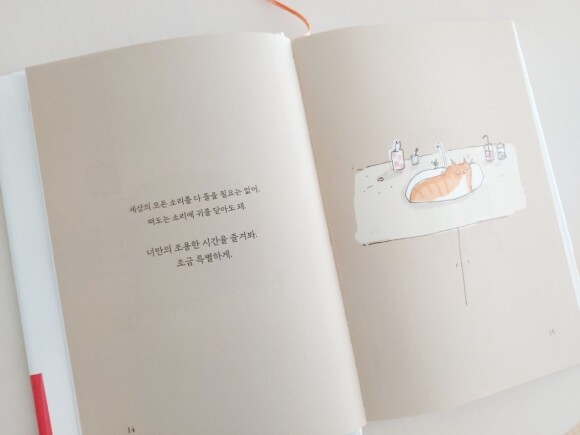 세상의 모든 소리를 다 들을 필요는 없어.
떠도는 소리에 귀를 닫아도 돼.
너만의 조용한 시간을 즐겨봐.
조금 특별하게.
14
15